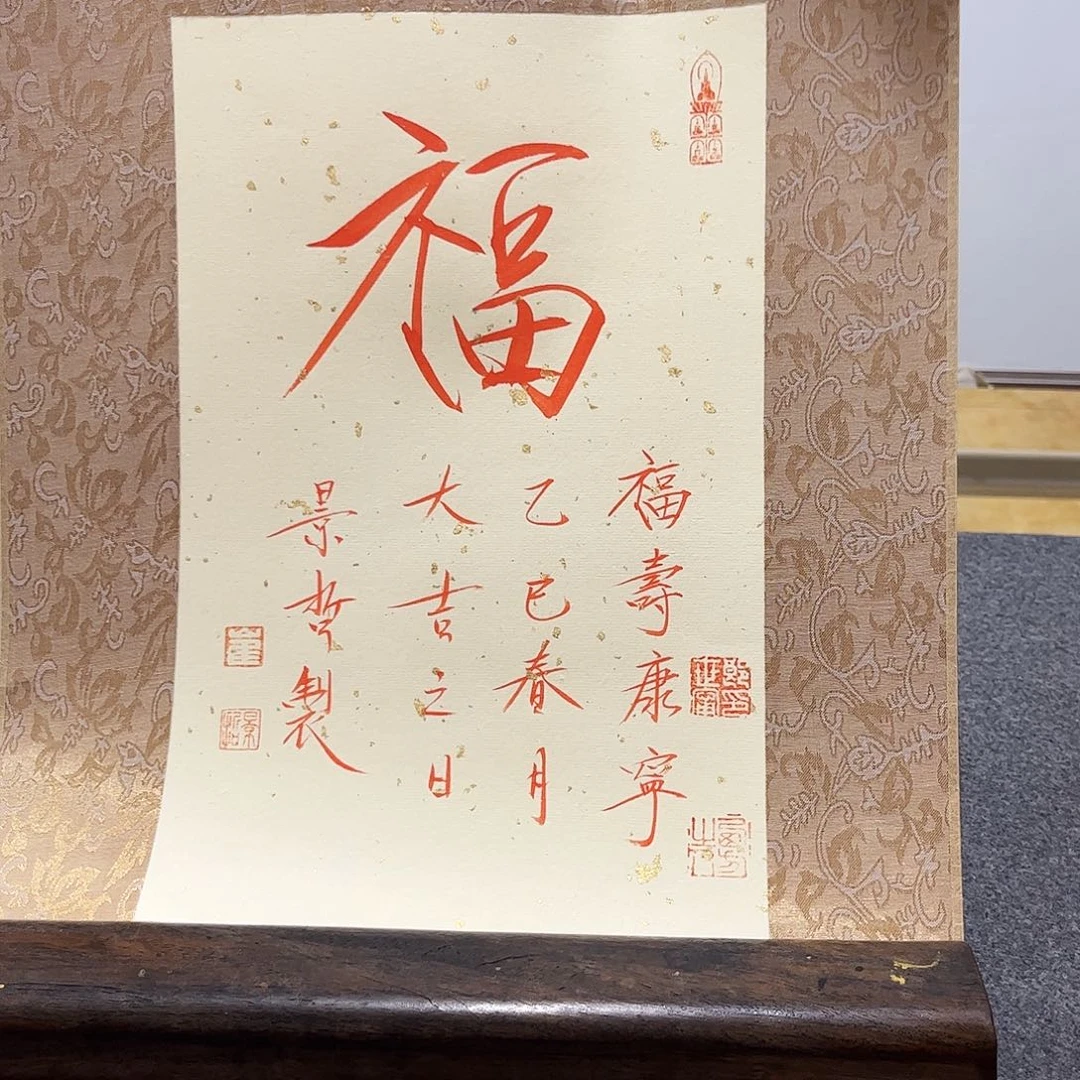 福
福壽康寧
乙巳春月
大吉之日
景哲製